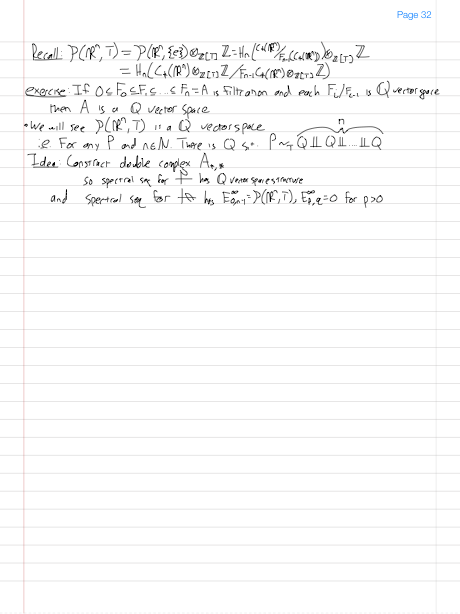 Page 32
Recall: P(ℝⁿ, T) = P(ℝⁿ, {e}) ⊗_ℤ[T] ℤ = Hₙ(C₊(ℝⁿ)/Fₙ₋₁(C₊(ℝⁿ)) ⊗_ℤ[T] ℤ
= Hₙ(C₊(ℝⁿ) ⊗_ℤ[T] ℤ / Fₙ₋₁ C₊(ℝⁿ) ⊗_ℤ[T] ℤ)
exercise: If 0 ≤ F₀ ≤ F₁ ≤ ... ≤ Fₙ = A is filtration and each Fᵢ/Fᵢ₋₁ is ℚ vector space
then A is a ℚ vector space
• We will see P(ℝⁿ, T) is a ℚ vector space
ie For any P and n∈ℕ. There is Q s.t. P ~_T Q ⨿ Q ⨿ ... ⨿ Q
n
Idea: Construct double complex A_*,*
so spectral seq for has ℚ vector space structure
and spectral seq for has E^∞_0,n = P(ℝⁿ, T), E^∞_p,q = 0 for p>0